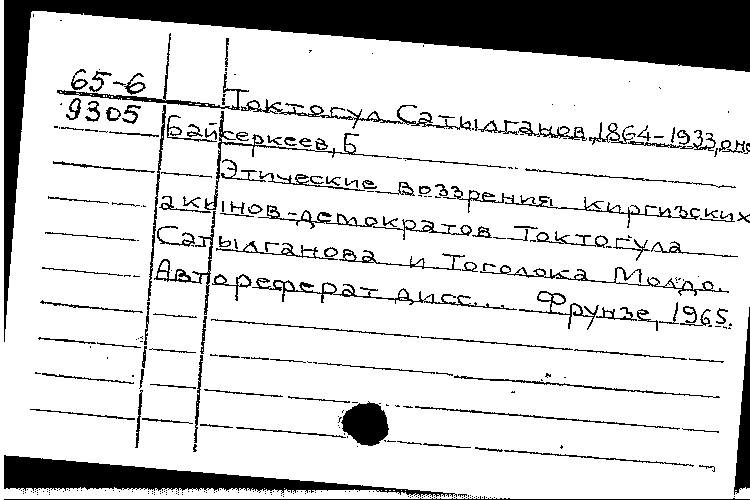 65-6
9305
Токтогул Сатылганов, 1864-1933, о не
Байсеркеев, Б
Этические воззрения киргизских
акынов-демократов Токтогула
Сатылганова и Тоголока Молдо.
Автореферат дисс... Фрунзе, 1965.